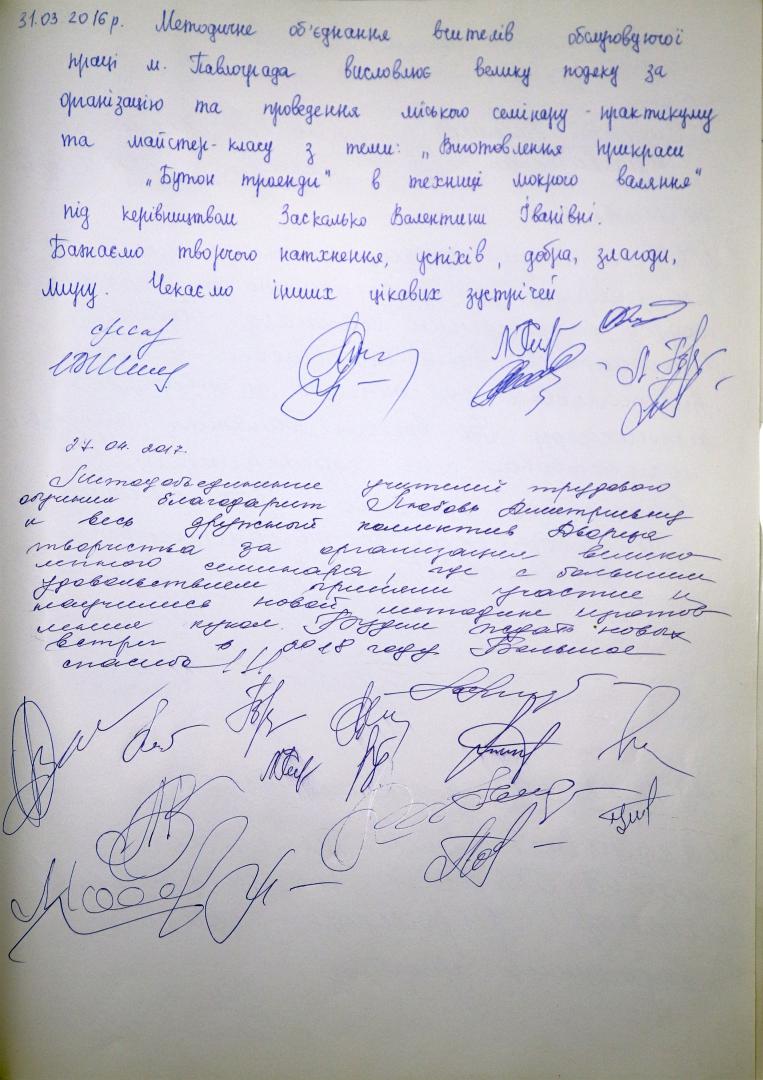 31.03.2016р. Методичне об'єднання вчителів обслуговуючої
праці м. Павлограда висловлює велику подяку за
організацію та проведення міського семінару-практикуму
та майстер-класу з теми: „Виготовлення прикраси
„Бутон троенди" в техніці мокрого валяння"
під керівництвом Заскалько Валентини Іванівні.
Бажаємо творчого натхнення, успіхів, добра, злагоди,
миру. Чекаємо інших цікавих зустрічей
27.04.2017.
Методобъединение учителей трудового
обучения благодарит Любовь Дмитриевну
и весь дружный коллектив Дворца
творчества за организацию велико
лепного семинара, где с большим
удовольствием приняли участие и
научились новой методике изготов
ления кукол. Будем ждать новых
встреч в 2018 году. Большое
спасибо!!!